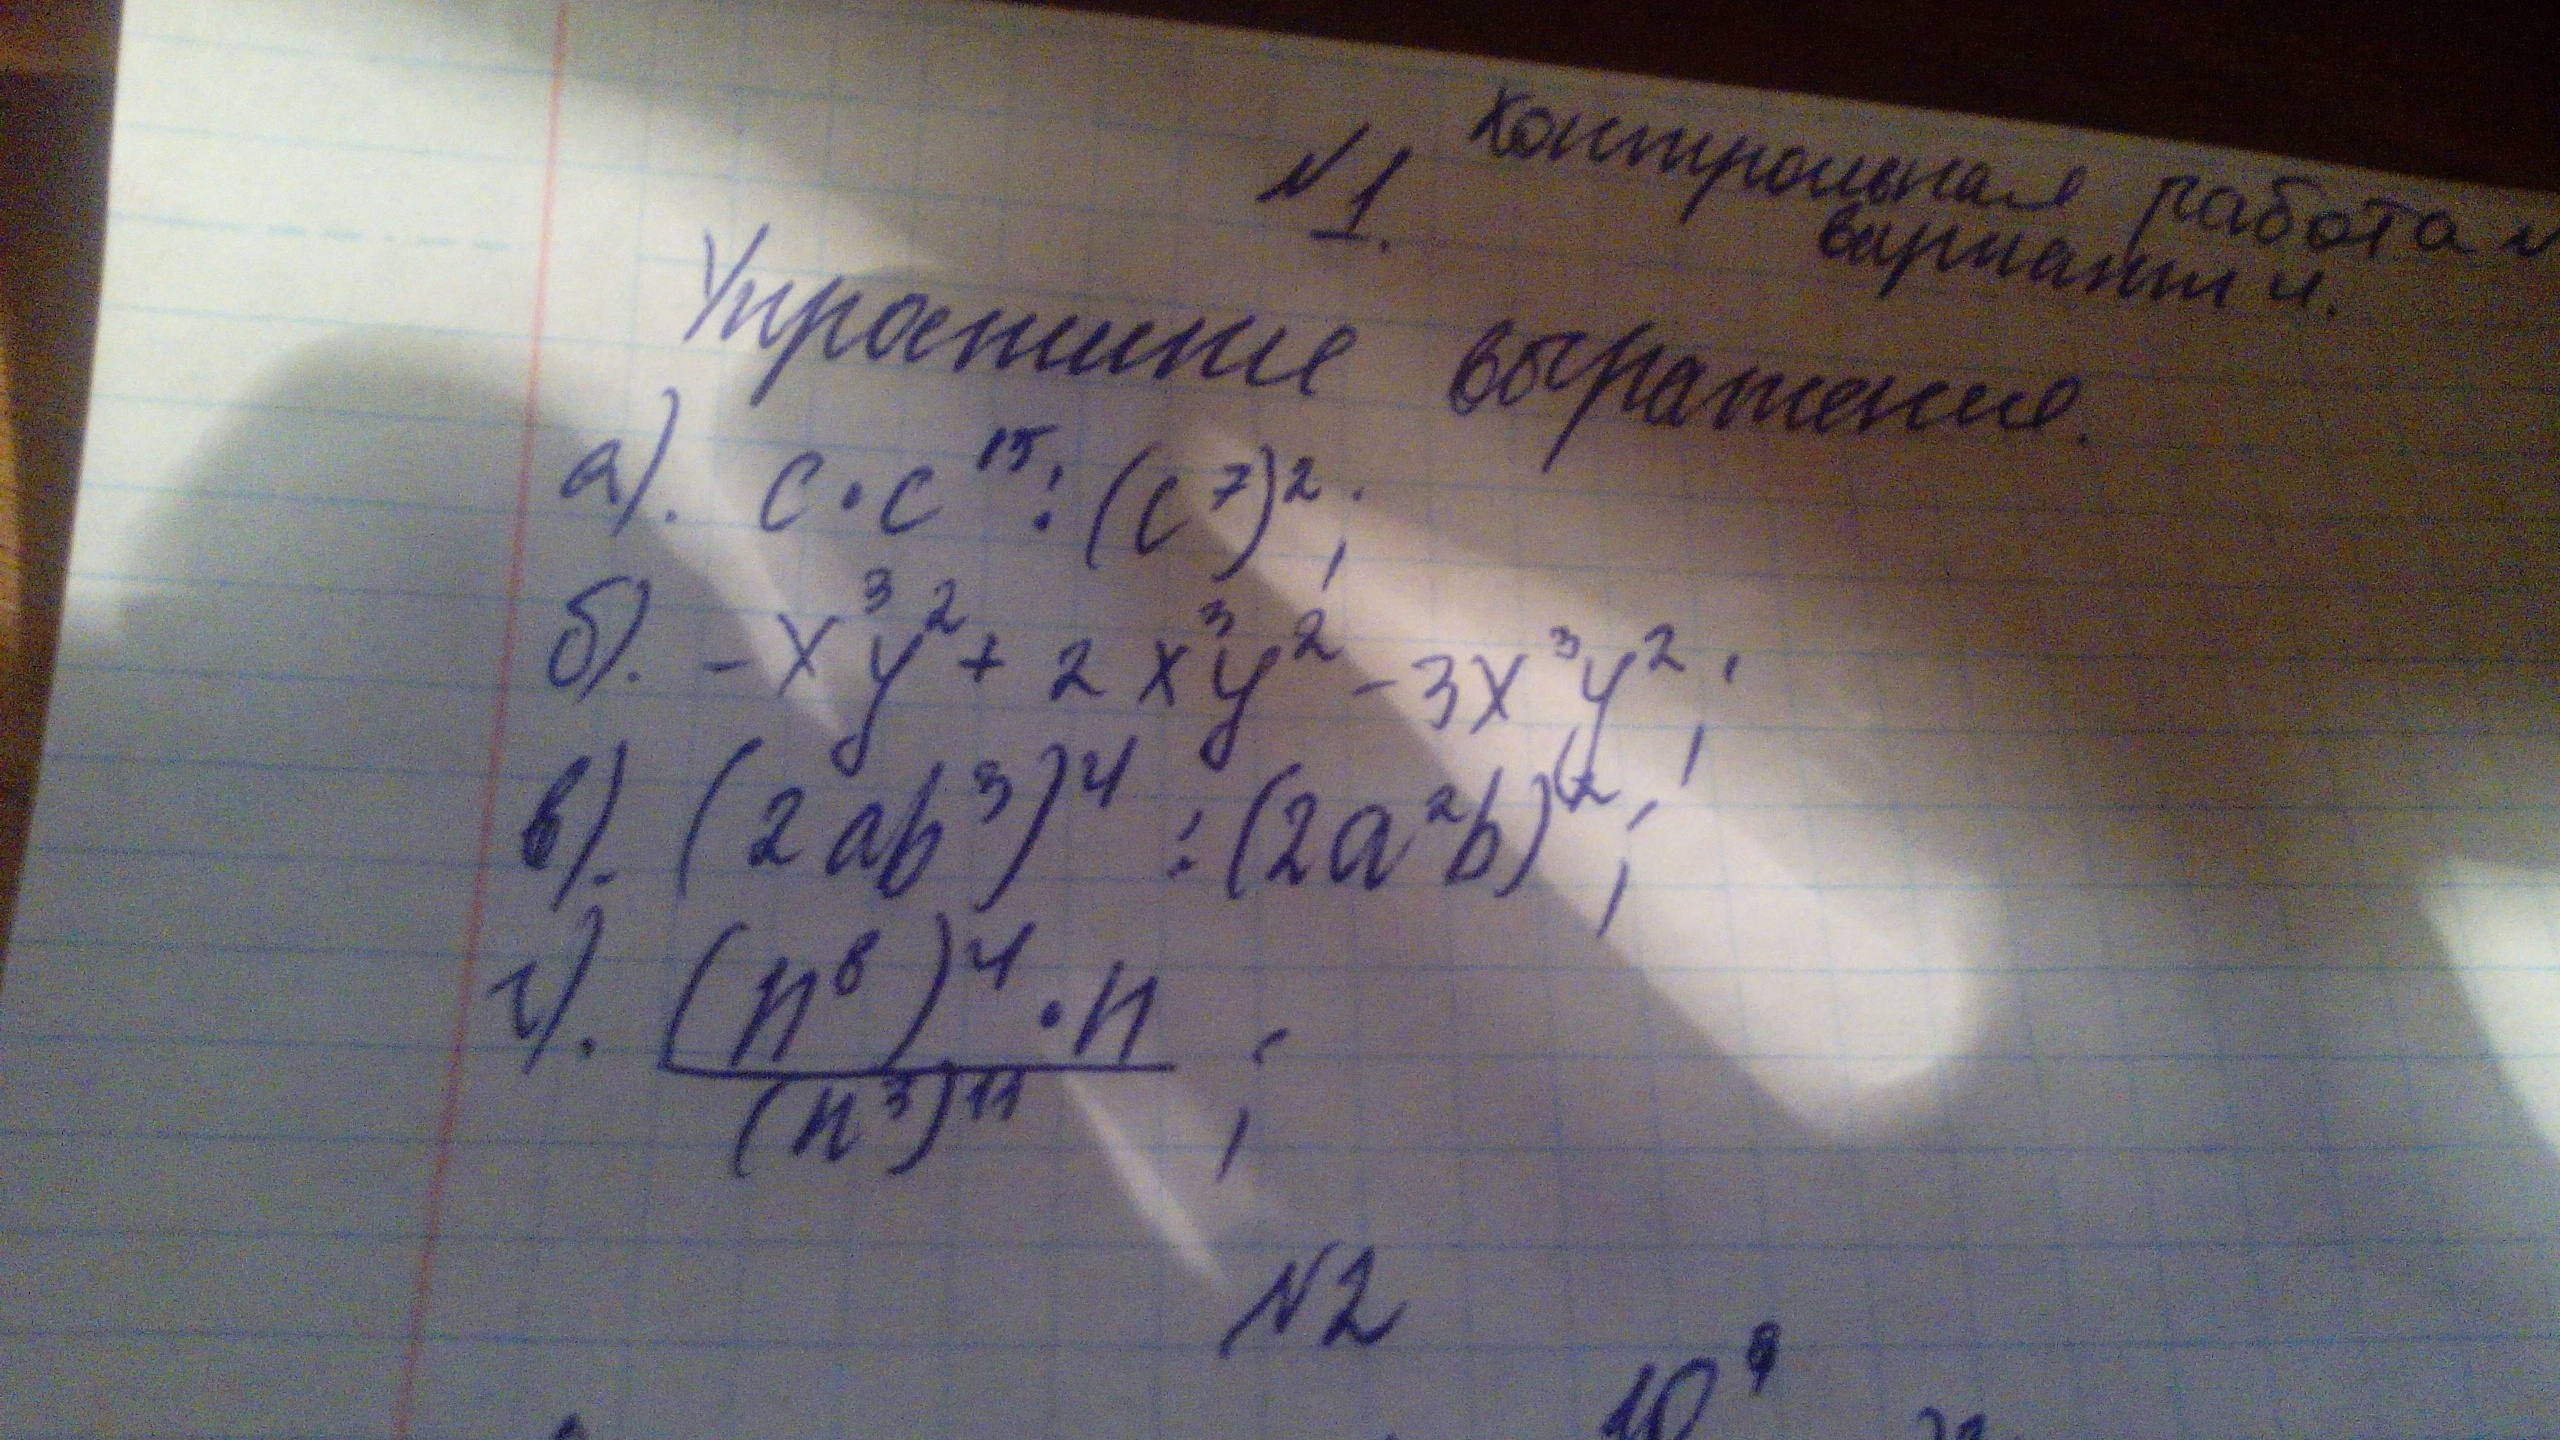 Контрольная работа
№1. вариант 4.
Упростите выражение.
а). c · c¹⁵ : (c⁷)²;
б). - x³y² + 2x³y² - 3x³y²;
в). (2ab³)⁴ : (2a²b)²;
г). (n⁸)⁴ · n / (n³)¹¹;
№2
10